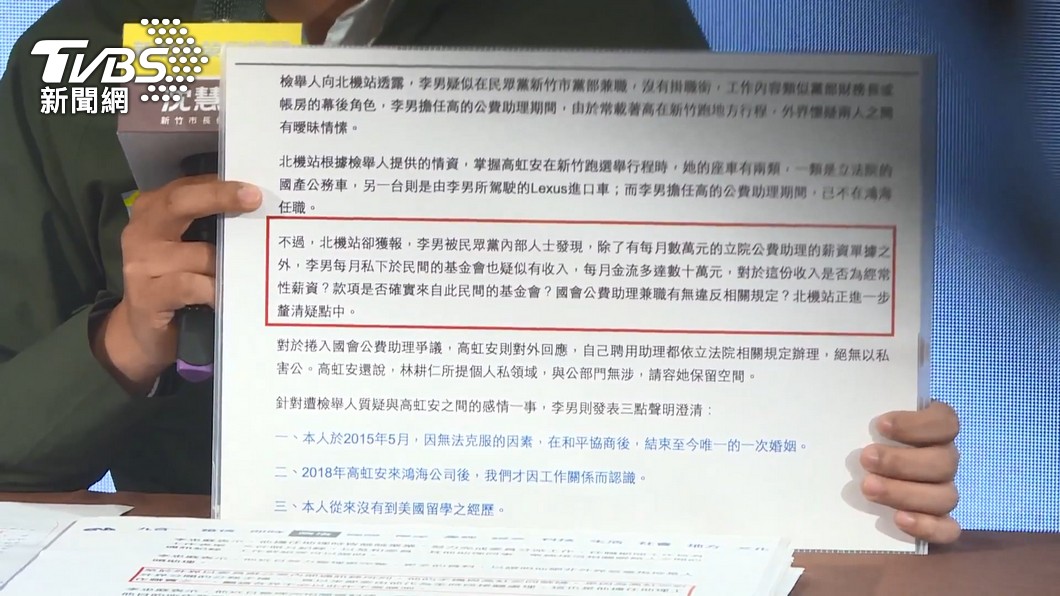 TVBS
新聞網
沈慧
新竹市長
檢舉人向北機站透露，李男疑似在民眾黨新竹市黨部兼職，沒有掛職銜，工作內容類似黨部財務長或
帳房的幕後角色，李男擔任高的公費助理期間，由於常載著高在新竹跑地方行程，外界懷疑兩人之間
有曖昧情愫。
北機站根據檢舉人提供的情資，掌握高虹安在新竹跑選舉行程時，她的座車有兩類，一類是立法院的
國產公務車，另一台則是由李男所駕駛的Lexus進口車；而李男擔任高的公費助理期間，已不在鴻海
任職。
不過，北機站卻獲報，李男被民眾黨內部人士發現，除了有每月數萬元的立院公費助理的薪資單據之
外，李男每月私下於民間的基金會也疑似有收入，每月金流多達數十萬元，對於這份收入是否為經常
性薪資？款項是否確實來自此民間的基金會？國會公費助理兼職有無違反相關規定？北機站正進一步
釐清疑點中。
對於捲入國會公費助理爭議，高虹安則對外回應，自己聘用助理都依立法院相關規定辦理，絕無以私
害公。高虹安還說，林耕仁所提個人私領域，與公部門無涉，請容她保留空間。
針對遭檢舉人質疑與高虹安之間的感情一事，李男則發表三點聲明澄清：
一、本人於2015年5月，因無法克服的因素，在和平協商後，結束至今唯一的一次婚姻。
二、2018年高虹安來鴻海公司後，我們才因工作關係而認識。
三、本人從來沒有到美國留學之經歷。